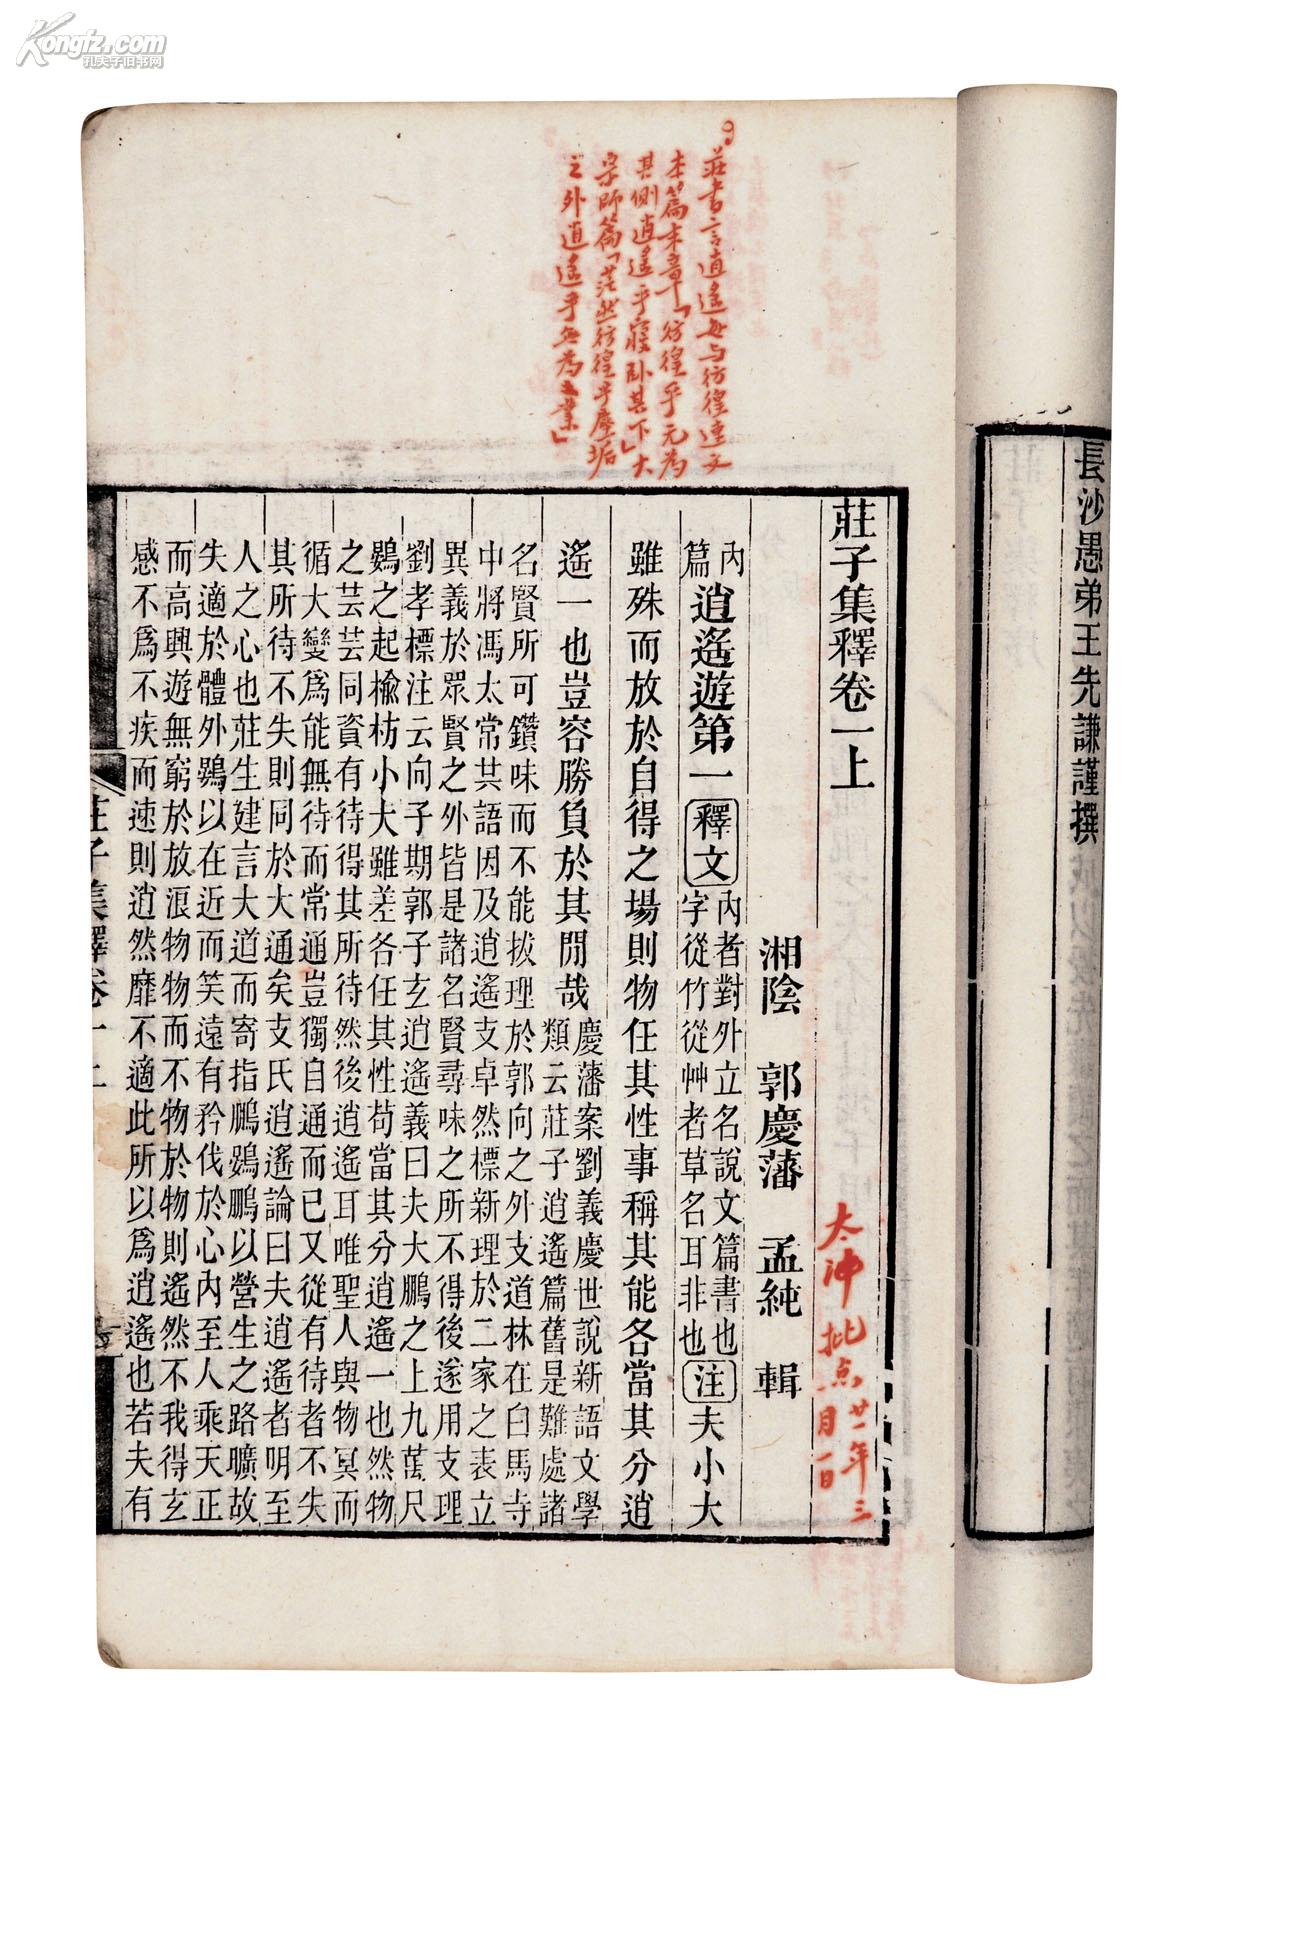 Kongfz.com
孔夫子旧书网
長沙愚弟王先謙謹撰
莊子集釋卷一上
湘陰 郭慶藩 孟純 輯
太沖批点廿一年三
月一日
內
篇
逍遙遊第一
釋文
內者對外立名說文篇書也
字從竹從艸者草名耳非也
注
夫小大
雖殊而放於自得之場則物任其性事稱其能各當其分逍
遙一也豈容勝負於其閒哉
慶藩案劉義慶世說新語文學
類云莊子逍遙篇舊是難處諸
名賢所可鑽味而不能拔理於郭向之外支道林在白馬寺
中將馮太常共語因及逍遙支卓然標新理於二家之表立
異義於眾賢之外皆是諸名賢尋味之所不得後遂用支理
劉孝標注云向子期郭子玄逍遙義曰夫大鵬之上九萬尺
鷃之起榆枋小大雖差各任其性苟當其分逍遙一也然物
之芸芸同資有待得其所待然後逍遙耳唯聖人與物冥而
循大變爲能無待而常通豈獨自通而已又從有待者不失
其所待不失則同於大通矣支氏逍遙論曰夫逍遙者明至
人之心也莊生建言大道而寄指鵬鷃鵬以營生之路曠故
失適於體外鷃以在近而笑遠有矜伐於心內至人乘天正
而高興遊無窮於放浪物物而不物於物則遙然不我得玄
感不爲不疾而速則逍然靡不適此所以爲逍遙也若夫有
莊書言逍遙每与彷徨連文
本篇末章「彷徨乎无为
其側逍遙乎寢卧其下」大
宗師篇「茫然彷徨乎塵垢
之外逍遙乎無為之業」
莊子集釋卷一上